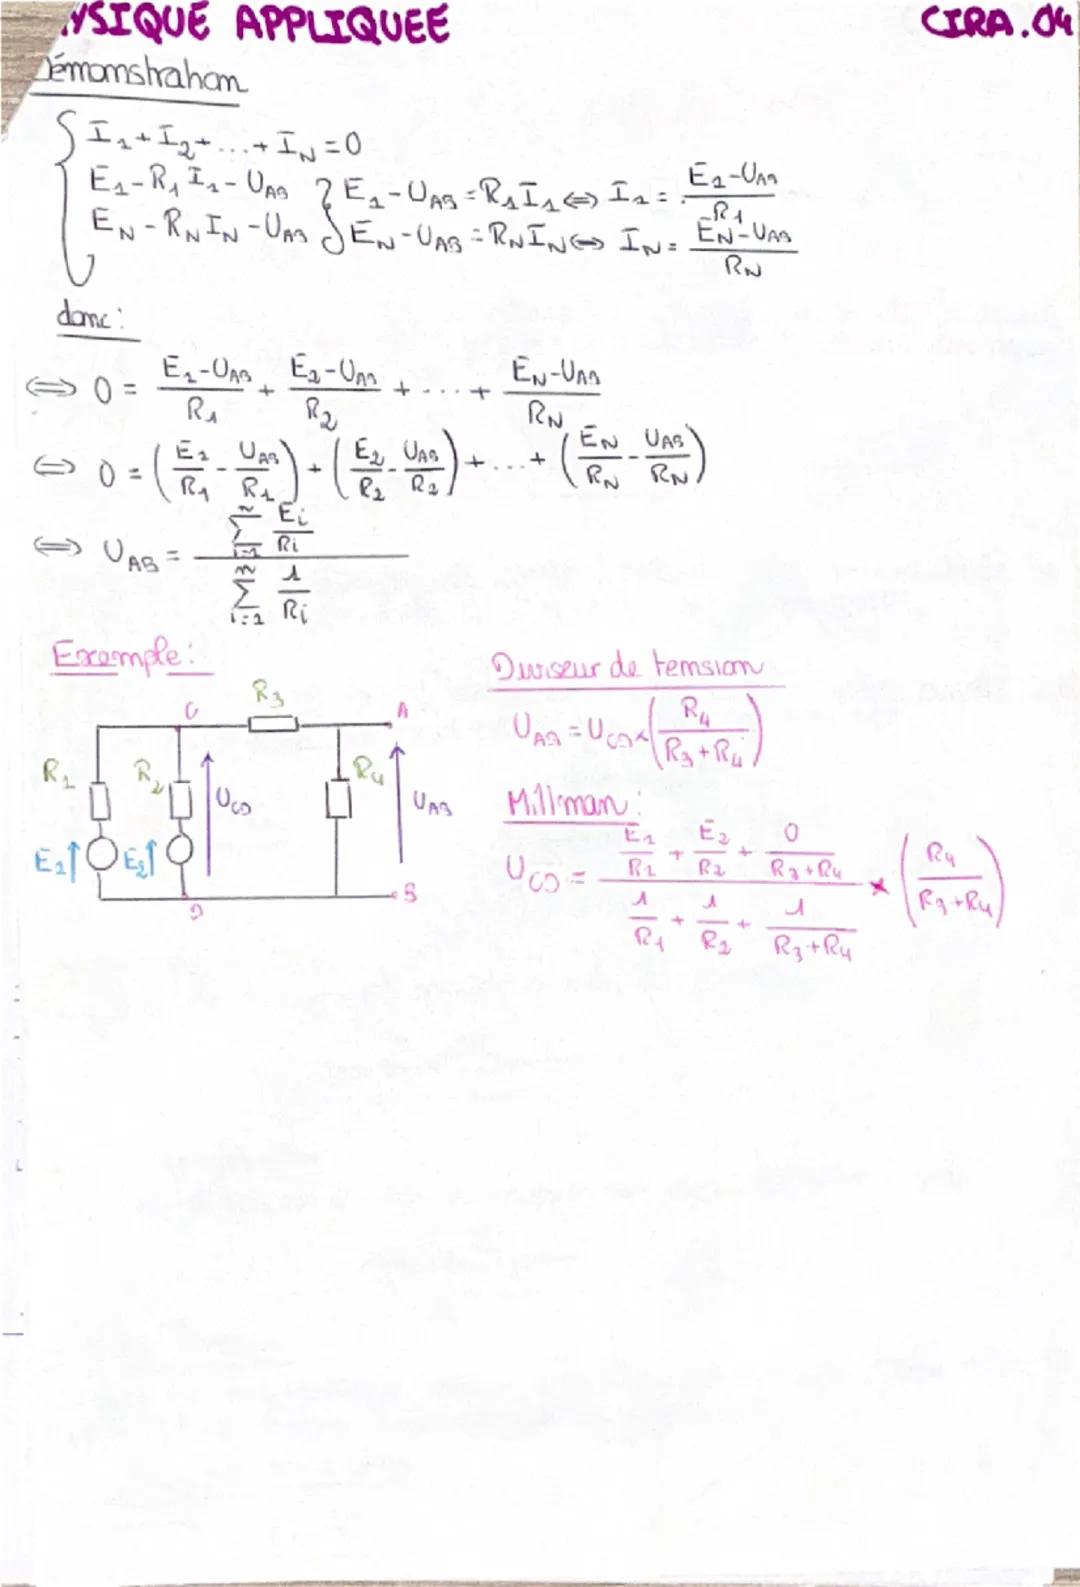 YSIQUE APPLIQUEE CIRA.04
Démonstration
I1 + I2 + ... + IN = 0
E1 - R1 I1 - UAB } E1 - UAB = R1 I1 ⇔ I1 = (E1 - UAB)/R1
EN - RN IN - UAB } EN - UAB = RN IN ⇔ IN = (EN - UAB)/RN
donc :
⇔ 0 = (E1 - UAB)/R1 + (E2 - UAB)/R2 + .... + (EN - UAB)/RN
⇔ 0 = (E1/R1 - UAB/R1) + (E2/R2 - UAB/R2) + ... + (EN/RN - UAB/RN)
⇔ UAB = (∑ i=1 N Ei/Ri) / (∑ i=1 N 1/Ri)
Exemple :
R3
C A
R1 R2 UCD R4 UAB
E1 E2
D B
Diviseur de tension
UAB = UCD × (R4/(R3 + R4))
Millman :
UCD = (E1/R1 + E2/R2 + 0/(R3 + R4)) / (1/R1 + 1/R2 + 1/(R3 + R4)) × (R4/(R3 + R4))